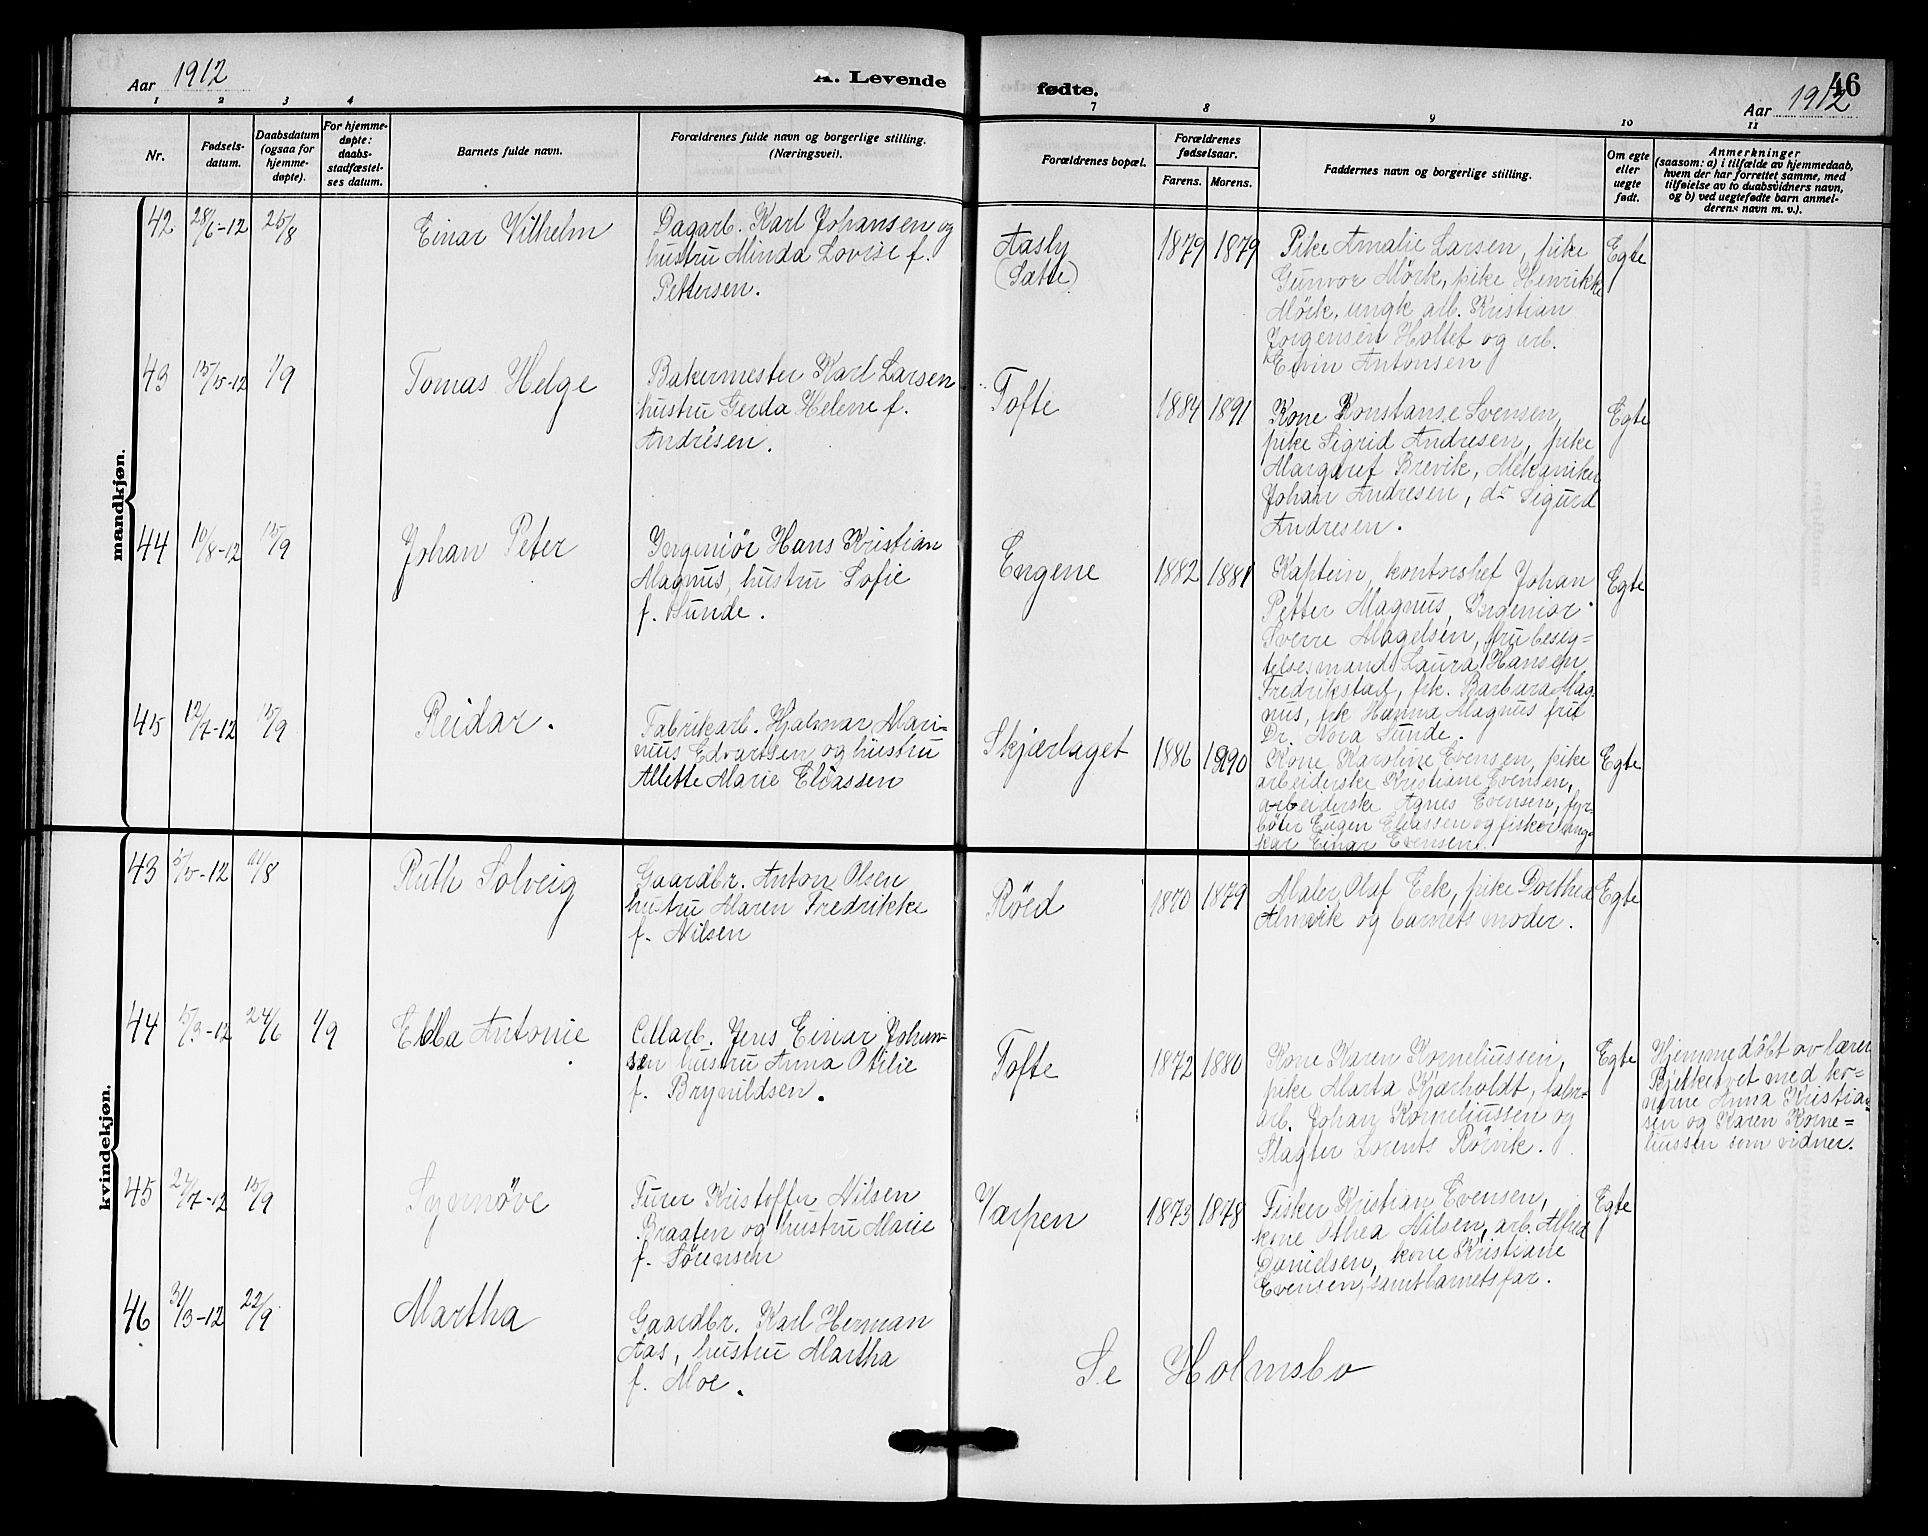 Aar 1912
A. Levende
fødte.
46
Aar 1912
1 2 3 4
7 8 9 10 11
Nr.
Fødsels-
datum.
Daabsdatum
(ogsaa for
hjemme-
døpte).
For hjemme-
døpte:
daabs-
stadfæstel-
ses datum.
Barnets fulde navn.
Forældrenes fulde navn og borgerlige stilling.
(Næringsvei).
Forældrenes bopæl.
Forældrenes
fødselsaar.
Farens. Morens.
Faddernes navn og borgerlige stilling.
Om egte
eller
uegte
født.
Anmerkninger
(saasom: a) i tilfælde av hjemmedaab,
hvem der har forrettet samme, med
tilføielse av to daabsvidners navn,
og b) ved uegtefødte barn anmel-
derens navn m. v.).
mandkjøn.
42 28/6-12 25/8
Einar Vilhelm
Dagarb. Karl Johansen og
hustru Minda Lovise f.
Pettersen.
Aasly
(Sætre)
1879 1879
Pike Amalie Larsen, pike
Gunvor Mörk, pike Henrikke
Mörk, ungk. arb. Kristian
Jorgensen Holtet og arb.
Antonsen
Egte
43 15/5-12 1/9
Tomas Helge
Bakermester Karl Larsen
hustru Gerda Helene f.
Andresen.
Tofte
1884 1891
Kone Konstanse Svensen,
pike Sigrid Andresen, pike
Margaret Brevik, Mekaniker
Johan Andresen, do Sigurd
Andresen.
Egte
44 10/8-12 15/9
Johan Peter
Ingeniör Hans Kristian
Magnus, hustru Sofie
f. Sunde.
Engene
1882 1881
Kaptein, kontorchef Johan
Petter Magnus, Ingeniör
Sverre Magelsen, fru besig-
telsesmand Laura Hansen
Fredrikstad, frk. Barbara Mag-
nus, frk Hanna Magnus fru
Dr. Nora Sunde.
Egte
45 12/7-12 15/9
Reidar.
Fabrikarb. Hjalmar Mari-
nus Edvartsen og hustru
Allette Marie Eliassen
Skjærlaget
1886 1890
Kone Karoline Evensen, pike
arbeiderske Kristiane Evensen,
arbeiderske Agnes Evensen, fyr-
böter Eugen Eliassen og fisker ung-
kar Einar Evensen.
Egte
kvindekjøn.
43 5/5-12 /8
Ruth Solveig
Gaardbr. Anton Olsen
hustru Maren Fredrikke
f. Nilsen
Röed
1870 1879
Maler Olaf Eek, pike Dorthea
Almvik og barnets moder.
Egte
44 5/3-12 24/6 1/9
Ella Antonie
Cellarb. Jens Einar Johan-
sen hustru Anna Otilie
f. Brynildsen.
Tofte
1872 1880
Kone Karen Korneliussen,
pike Marta Kjærholdt, fabr-
arb. Johan Korneliussen og
Slagter Lorents Rörvik.
Egte
Hjemmedöbt av lærer
Bjelketvet med ko-
nerne Anna Kristian-
sen og Karen Korne=
liussen som vidner.
45 2/7-12 15/9
Synnöve
Furer Kristoffer Nilsen
Braaten og hustru Marie
f. Sörensen
Varpen
1873 1878
Fisker Kristian Evensen,
kone Othea Nilsen, arb. Alfred
Danielsen, kone Kristiane
Evensen, samt barnets far.
Egte
46 31/3-12 22/9
Martha
Gaardbr. Karl Herman
Aas, hustru Martha
f. Moe.
Se Holmsbo